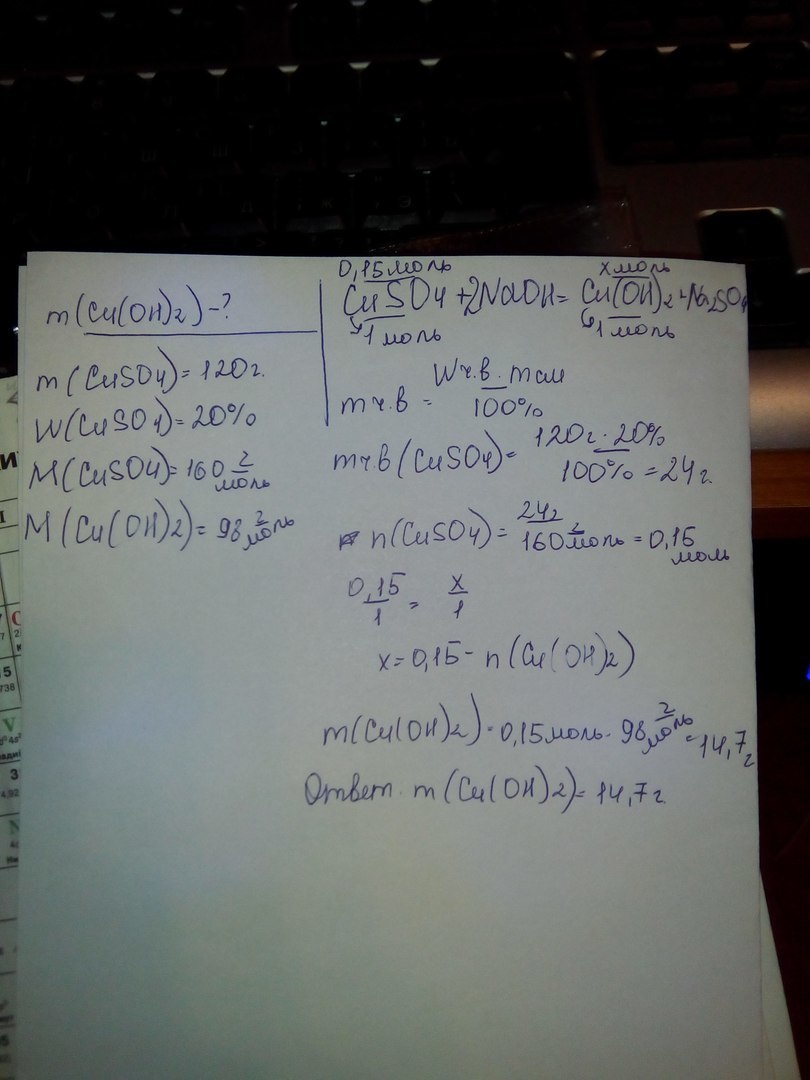 m(Cu(OH)2)-?
m(CuSO4)=120г.
W(CuSO4)=20%
M(CuSO4)=160 г/моль
M(Cu(OH)2)=98 г/моль
0,15моль xмоль
CuSO4+2NaOH=Cu(OH)2+Na2SO4
1 моль 1 моль
mч.в = Wч.в. mсм / 100%
mч.в(CuSO4)= 120г·20% / 100% =24г.
n(CuSO4)= 24г / 160 г/моль =0,15 моль
0,15/1 = x/1
x=0,15- n(Cu(OH)2)
m(Cu(OH)2)=0,15моль·98 г/моль=14,7г
Ответ. m(Cu(OH)2)=14,7г.